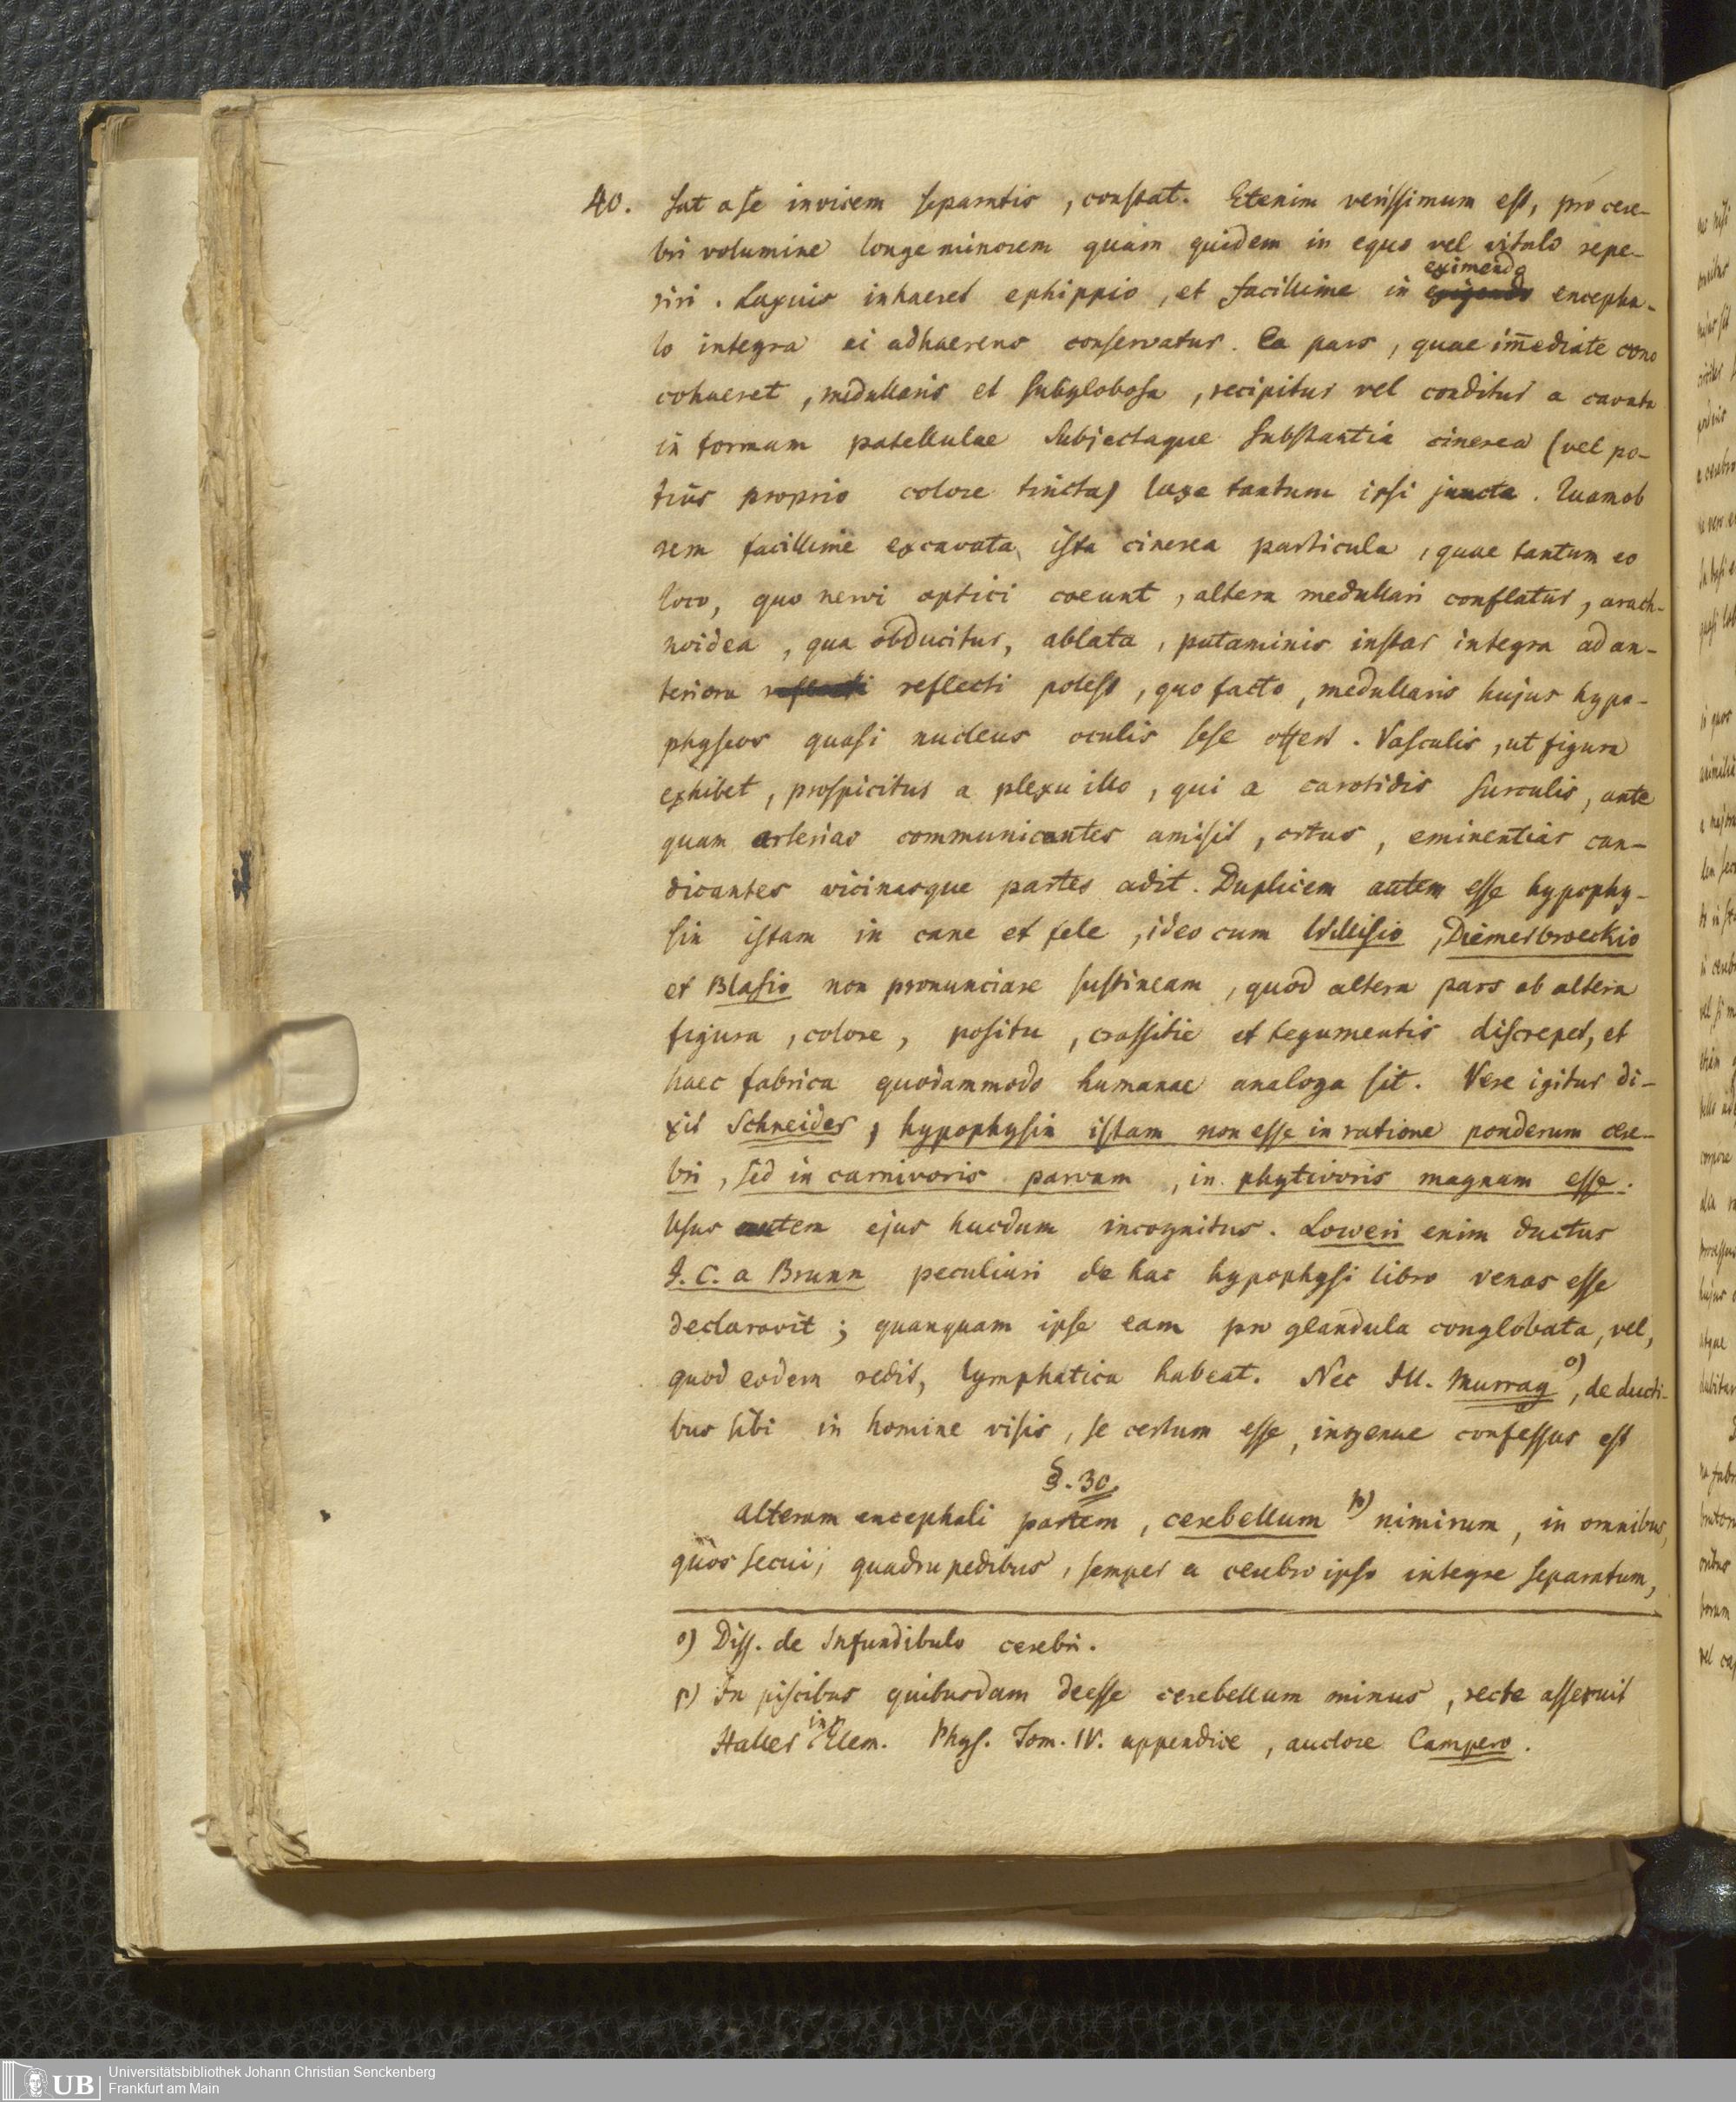 40. sat a se invicem separatis, constat. Etenim verissimum est, pro cere-
bri volumine longe minorem quam quidem in equo vel vitulo repe-
riri. Laxius inhaeret ephippio, et facillime in eximendo encepha-
lo integra ei adhaerens conservatur. Ea pars, quae im̄ediate cono
cohaeret, medullaris et subglobosa, recipitur vel conditur a cavata
in formam patellulae subjectaque substantia cinerea (vel po-
tius proprio colore tincta) laxe tantum ipsi juncta. Quamob
rem facillime excavata ista cinerea particula, quae tantum eo
loco, quo nervi optici coeunt, altera medullari conflatur, arach-
noidea, qua obducitur, ablata, putaminis instar integra ad an-
teriora reflecti reflecti potest, quo facto, medullaris hujus hypo-
physeos quasi nucleus oculis sese offert. Vasculis, ut figura
exhibet, prospicitur a plexu illo, qui a carotidis surculis, ante
quam arterias communicantes amisit, ortus, eminentias can-
dicantes vicinasque partes adit. Duplicem autem esse hypophy-
sin istam in cane et fele, ideo cum Willisio, Diemerbroeckio
et Blasio non pronunciare sustineam, quod altera pars ab altera
figura, colore, positu, crassitie et tegumentis discrepet, et
haec fabrica quodammodo humanae analoga sit. Vere igitur di-
xit Schneider, hypophysin istam non esse in ratione ponderum cere-
bri, sed in carnivoris parvam, in phytivoris magnam esse.
Usus autem ejus hucdum incognitus. Loweri enim ductus
J. C. a Brunn peculiari de hac hypophysi libro venas esse
declaravit; quanquam ipse eam pro glandula conglobata, vel,
quod eodem redit, lymphatica habeat. Nec Ill. Murray o), de ducti-
bus sibi in homine visis, se certum esse, ingenue confessus est
§. 30.
Alteram encephali partem, cerebellum p) nimirum, in omnibus,
quos secui, quadrupedibus, semper a cerebro ipso integre separatum,
o) Diss. de Infundibulo cerebri.
p) In piscibus quibusdam deesse cerebellum minus, recte asseruit
Haller in Elem. Phys. Tom. IV. appendice, auctore Campero.
Universitätsbibliothek Johann Christian Senckenberg
Frankfurt am Main
UB